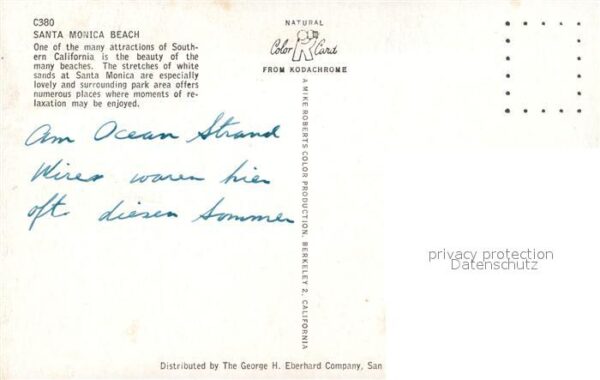 C380
SANTA MONICA BEACH
One of the many attractions of South-
ern California is the beauty of the
many beaches. The stretches of white
sands at Santa Monica are especially
lovely and surrounding park area offers
numerous places where moments of re-
laxation may be enjoyed.
NATURAL
Color Card
FROM KODACHROME
A MIKE ROBERTS COLOR PRODUCTION, BERKELEY 2, CALIFORNIA
am Ocean Strand
Wir waren hier
oft diesen Sommer
privacy protection
Datenschutz
Distributed by The George H. Eberhard Company, San